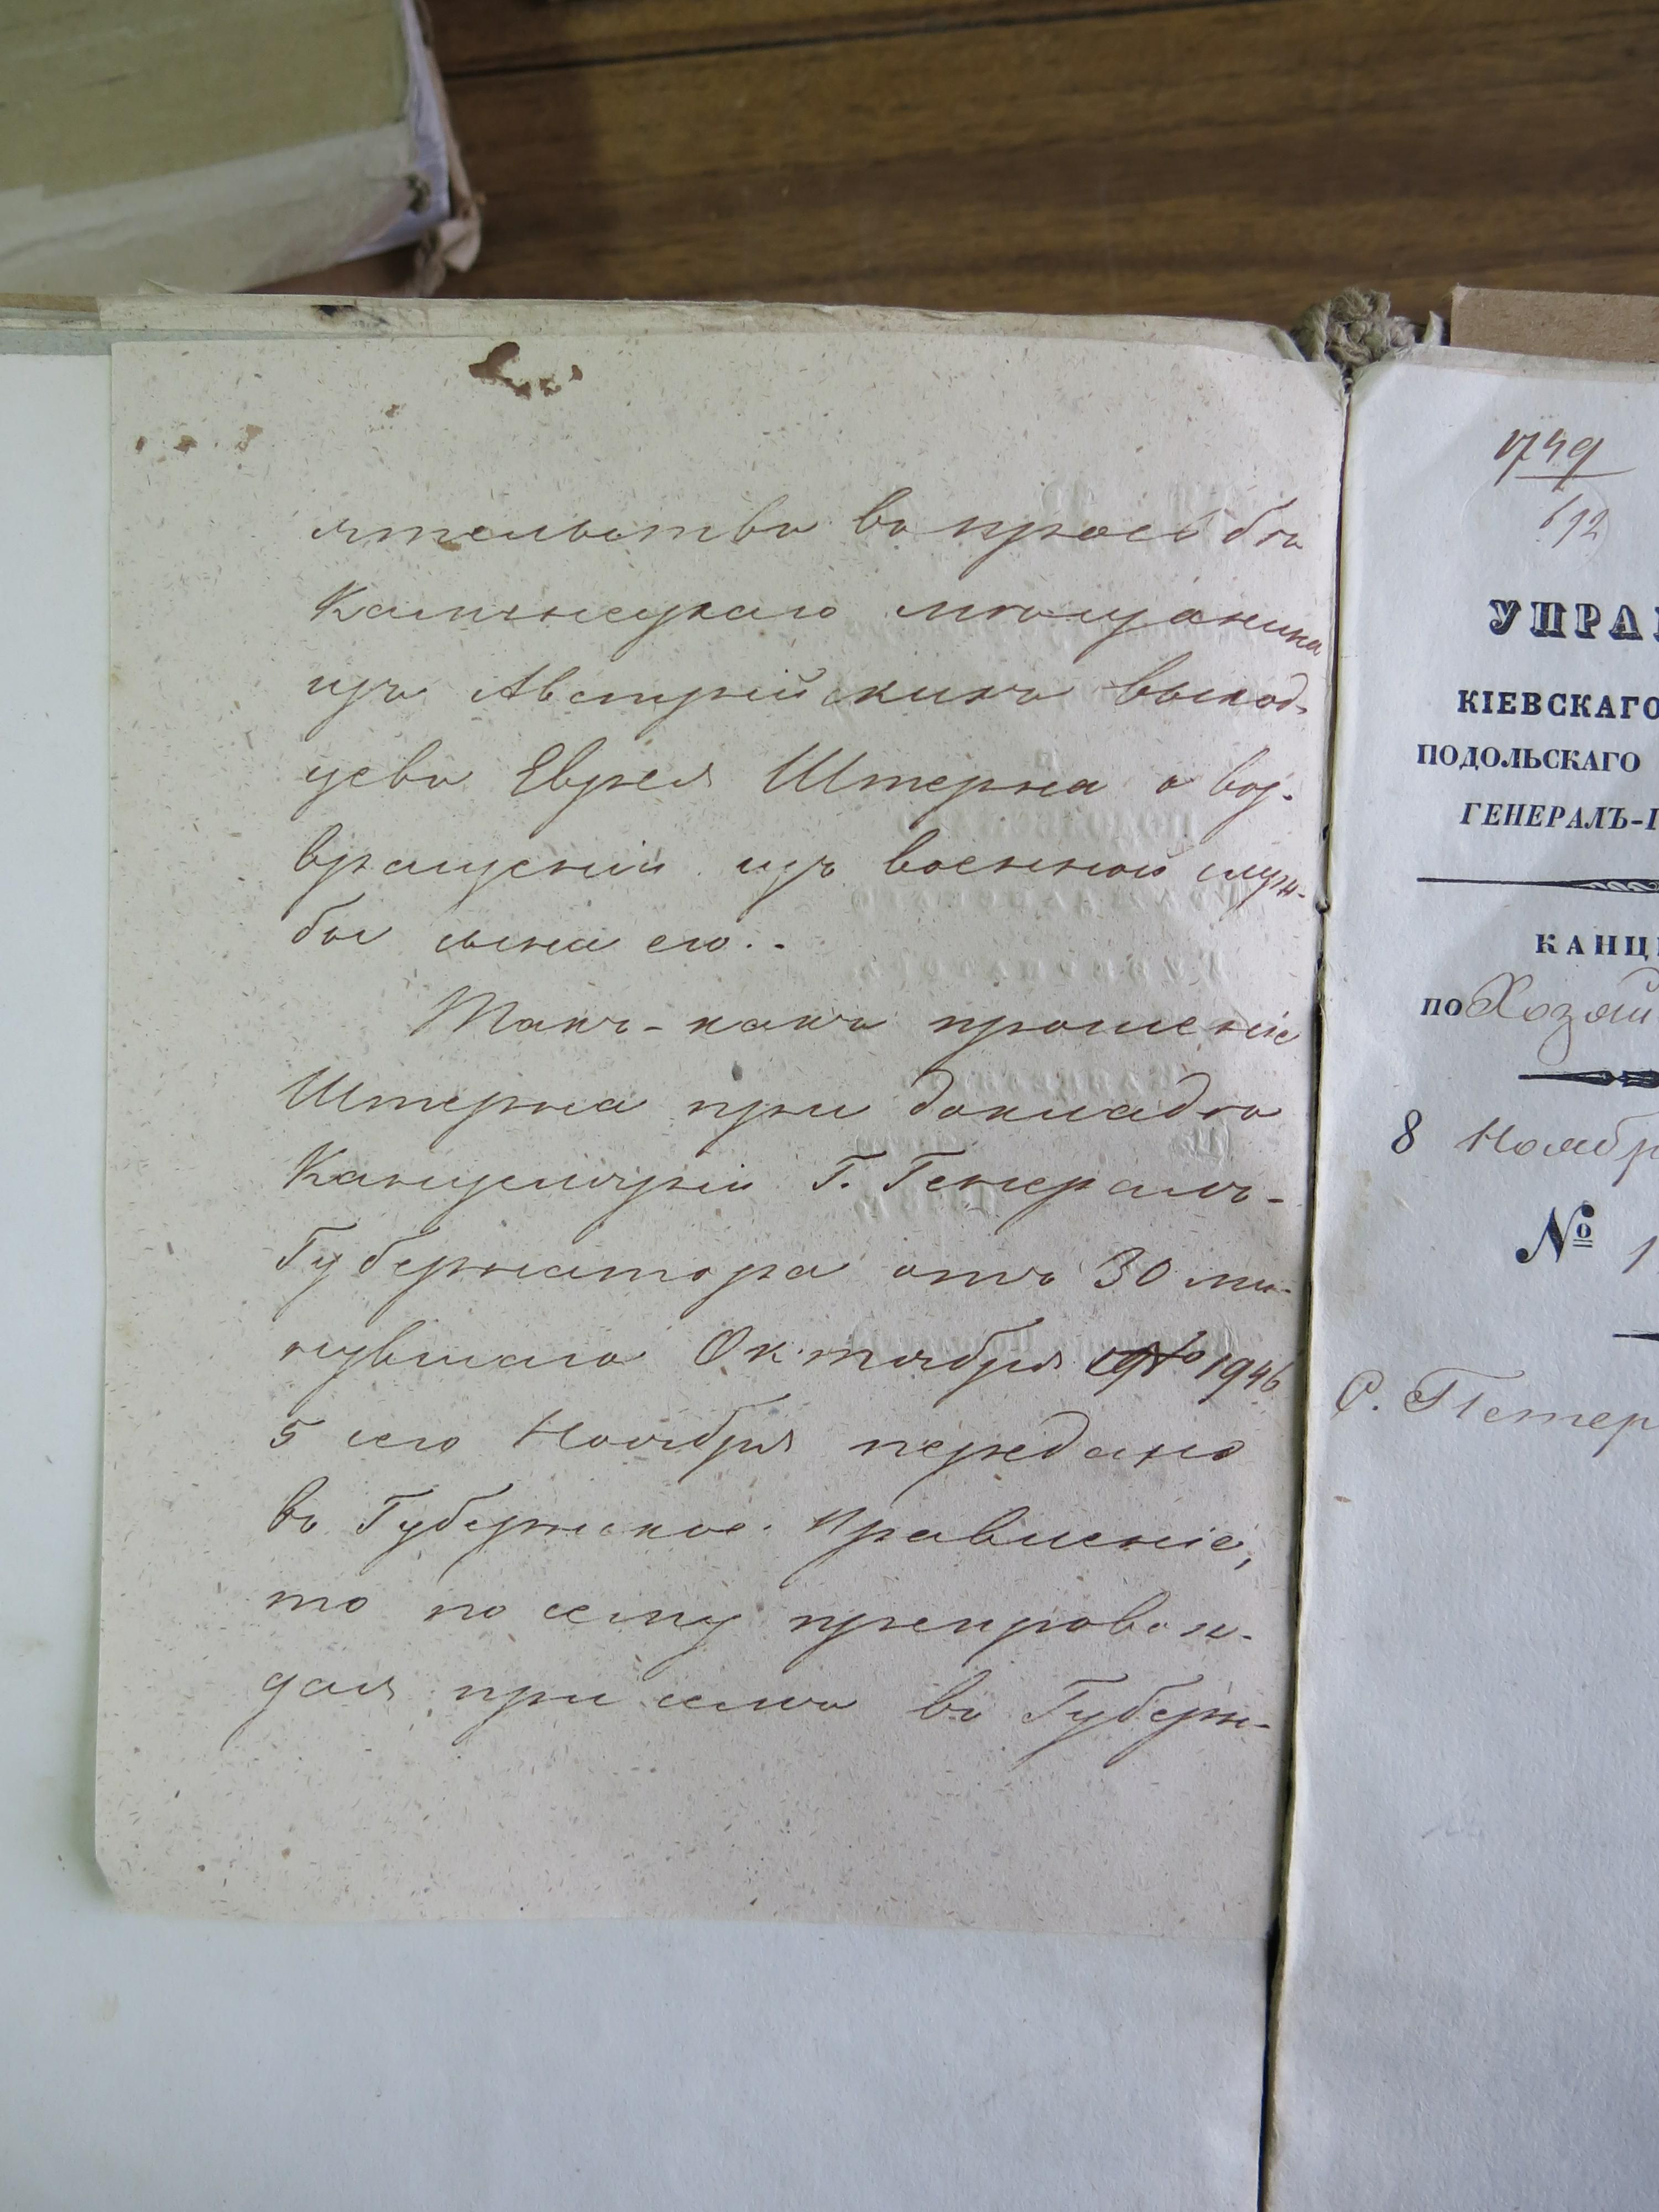 ятельствъ въ просьбѣ
Каменецкаго мѣщанина
изъ Австрійскихъ выход-
цевъ Еврея Штерна о воз-
вращеніи изъ военной служ-
бы сына его.
Такъ-какъ прошеніе
Штерна при докладѣ
Канцеляріи Г. Генералъ-
Губернатора отъ 30 ми-
нувшаго Октября 1946
5 сего Ноября передано
въ Губернское Правленіе,
то по сему препровож-
дая при семъ въ Губерн-
1749
692
УПРА
КІЕВСКАГО
ПОДОЛЬСКАГО
ГЕНЕРАЛЪ-Г
КАНЦ
по Хозяй
8 Ноябр
№ 1
С. Петер